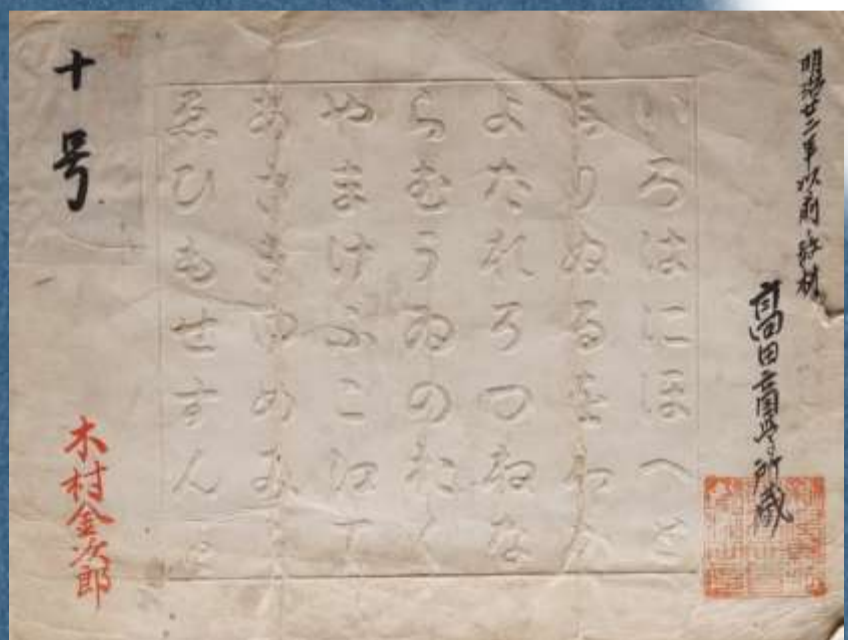 明治廿二年以前ノ教材
高田盲学所蔵
いろはにほへと
ちりぬるをわか
よたれそつねな
らむうゐのおく
やまけふこえて
あさきゆめみし
ゑひもせすん
十号
木村金次郎